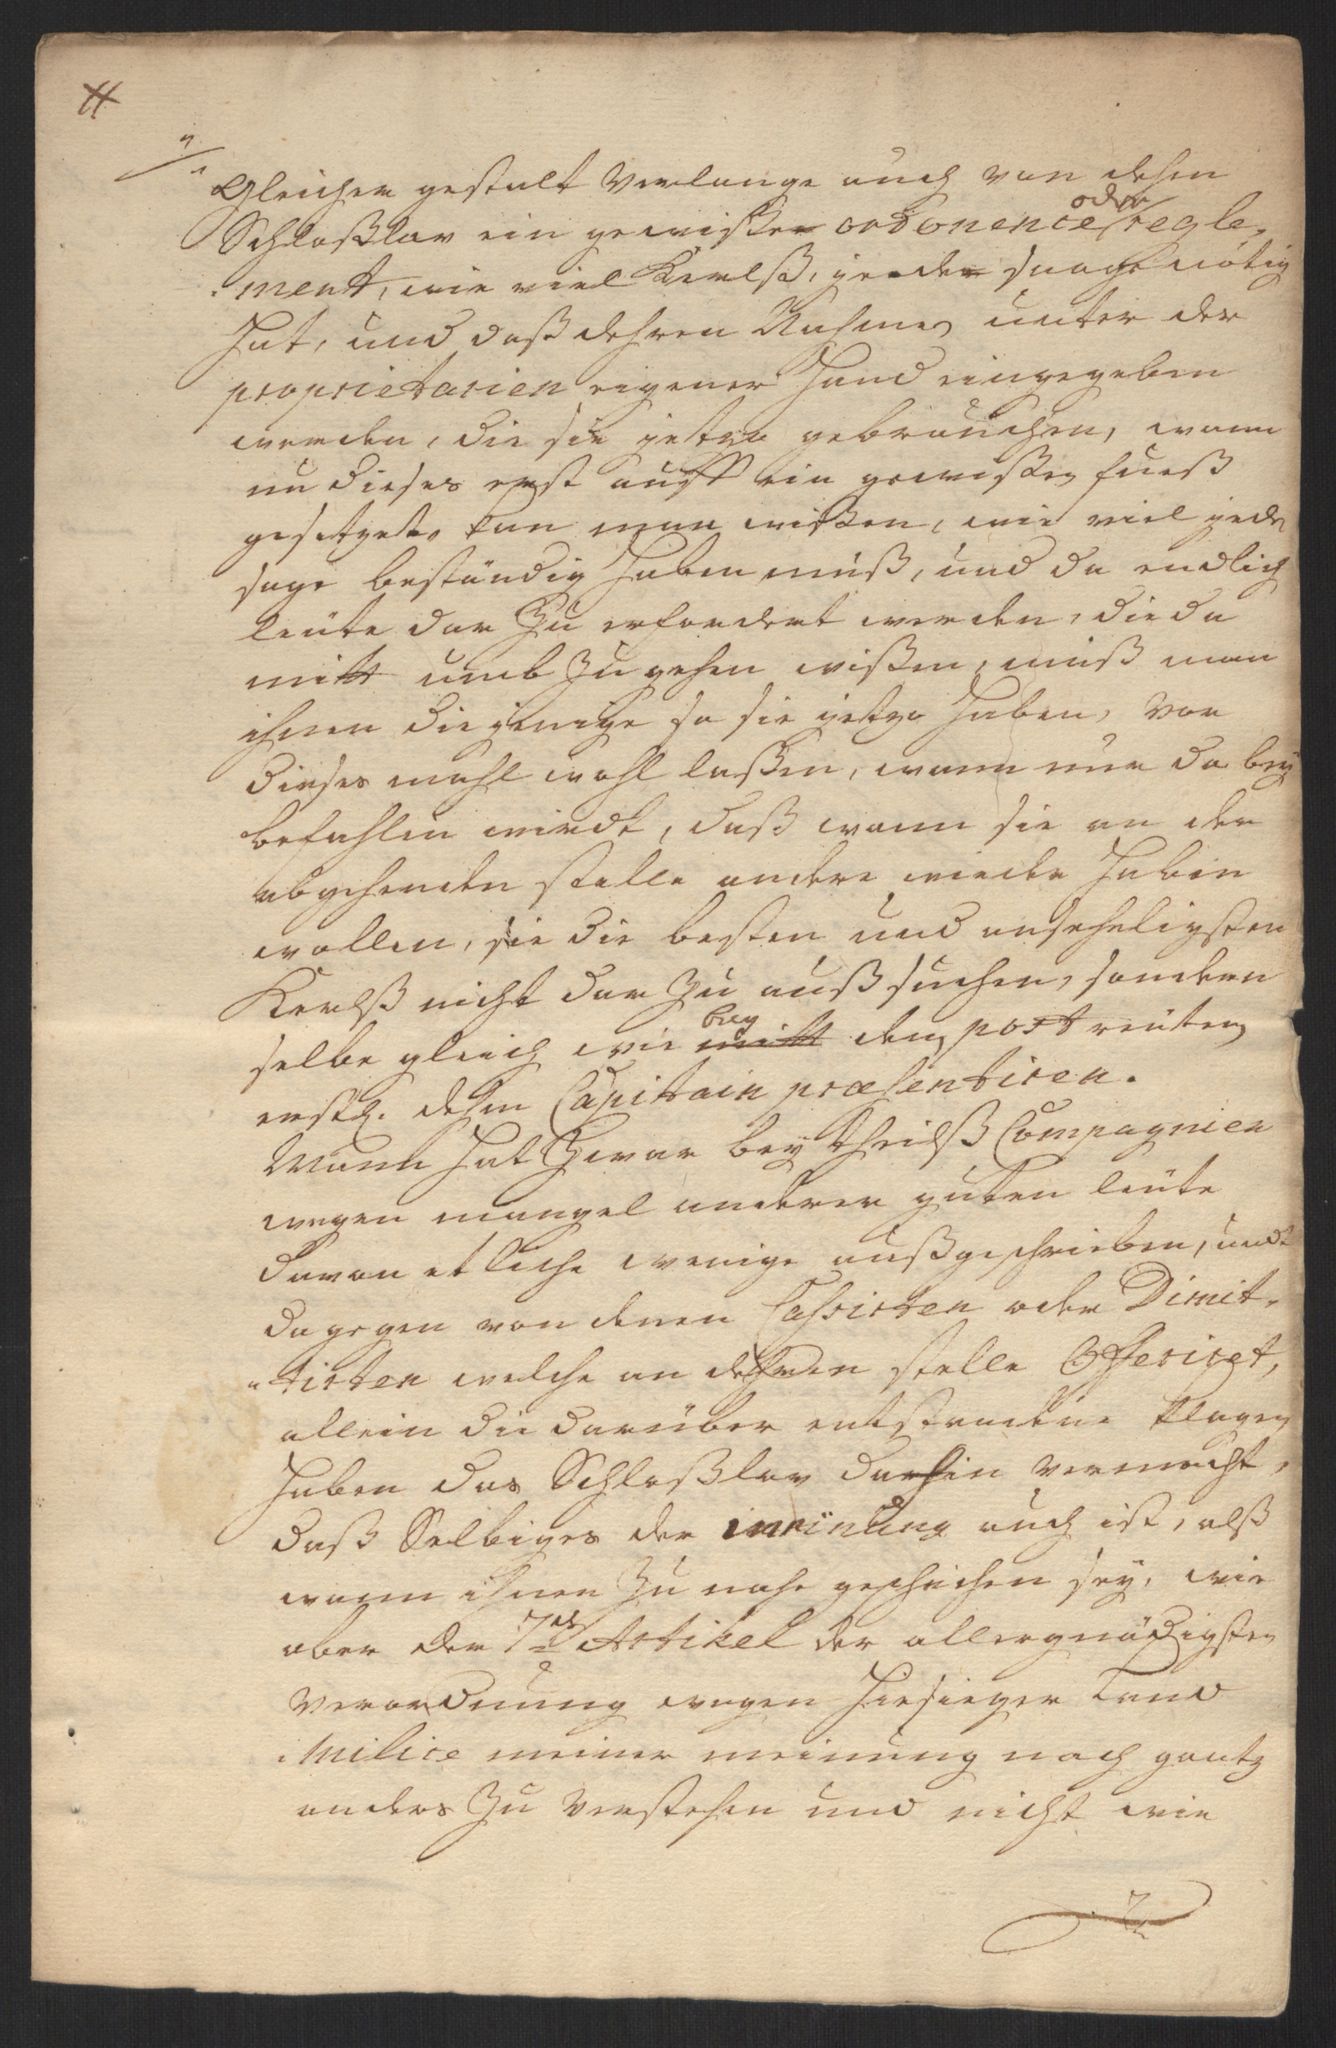 #
Gleicher gestalt Verlange auch von dehm
Schloßlov ein gewißer ordonence oder regle„
„ment, wie viel Kerlß, jeder sage nötig
Hat, und daß dehren Nahmen unter der
proprietarien eigener Hand eingegeben
werden, die sie jetzo gebrauchen, wann
nu dieses erst auff ein gewißen fueß
gesetzet, kan man wißen, wie viel jede
sage beständig Haben müß, und da endlich
leüte dar Zu erfordert werden, die da
mitt umb Zu gehen wißen, müß man
ihnen die jenige so sie jetzo Haben, vor
dieses mahl wohl laßen, wann nur da bey
befohlen wirdt, daß wann sie an der
abgehenden stelle andere wieder Haben
wollen, sie die besten und ansehligsten
Kerlß nicht dar Zu auß suchen, sondern
selbe gleich wie bey mitt den post reüten
erstl. dehm Capitain præsentiren.
Mann Hat Zwar bey theilß Compagnien
wegen mangel anderer guten leüte
davon etliche wenige außgeschrieben, undt
dagegen von denen Cassirten oder Dimit„
„tirten welche an dehren stelle Offeriret,
allein die darüber entstandene klagen
Haben das Schloßlov dahin vermocht,
daß Selbiges der meinung auch ist, alß
wann ihnen Zu nahe geschehen sey, wie
aber der 7de Artikel der allergnädigsten
Verordnung wegen Hiesieger Land
Milice meiner meinung nach gantz
anders Zu Verstehen und nicht wie